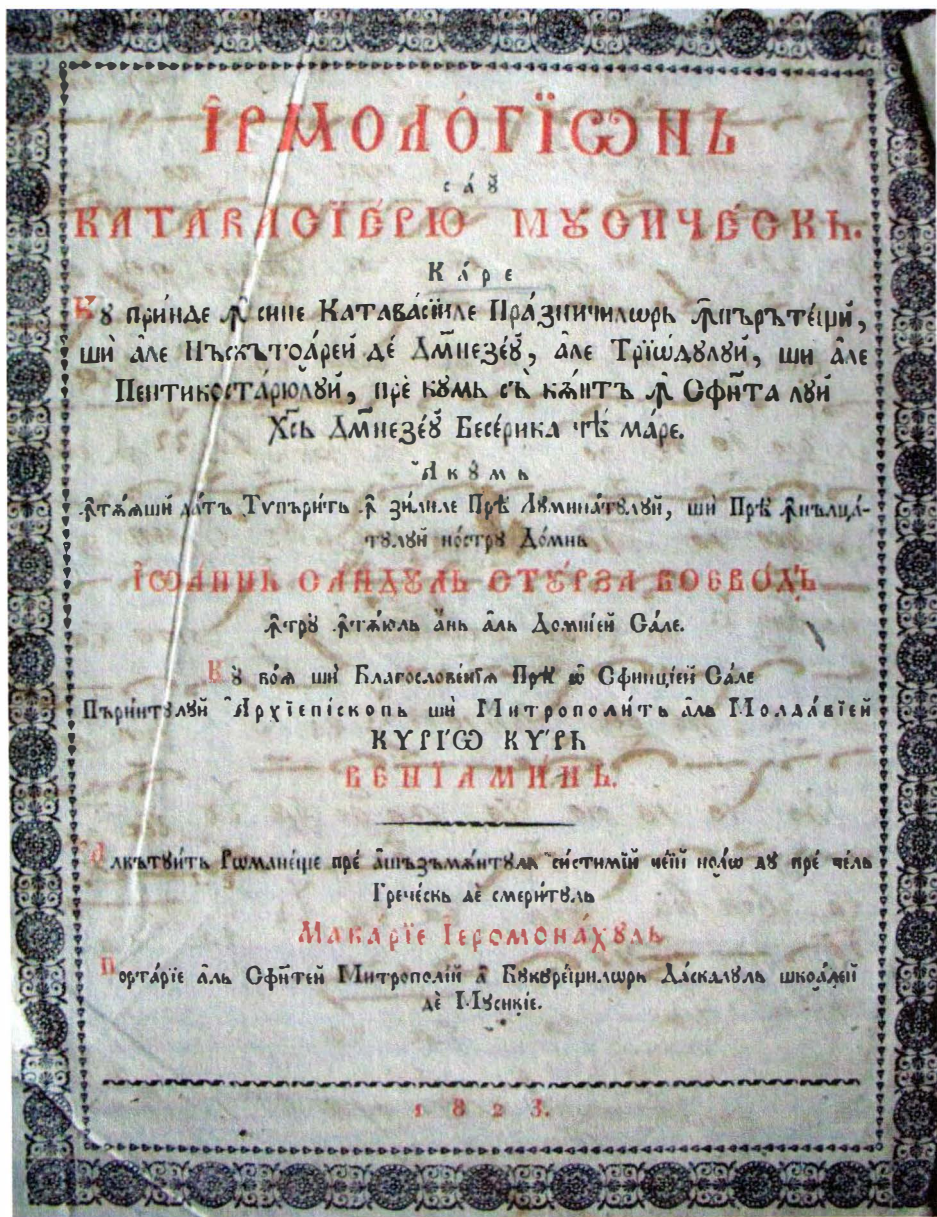 І҆РМОЛО́ГЇѠНЬ
са́ꙋ
КАТАВАСЇЕ́РЮ МꙋСИЧЕ́СКЬ.
Ка́ре
Кꙋ при́нде ꙟ҆ сине Катава́сїиле Пра́зничилѡрь ꙟ҆пърѫте́щи,
ши а҆ле Нъскътоа́рей де́ Дм҃незе́ꙋ, а҆ле Трїѡ́дꙋлꙋй, ши а҆ле
Пентикоста́рюлꙋй, пре кꙋмь съ кѫ́нтъ ꙟ҆ Сфи҃та лꙋй
Хс҃ь Дм҃незе́ꙋ Бесе́рика чѣ ма́ре.
А҆кꙋ́мь
ꙟ҆тѫ́ѧши да́тъ Тѵпъри́ть ꙟ҆ зи́лиле Прѣ Лꙋмина́тꙋлꙋй, ши Прѣ ꙟ҆нълца́-
тꙋлꙋй но́стрꙋ До́мнь
І҆ѠА́ННЬ СА́НДꙋЛЬ СТꙋ́РЗА ВОЕВО́ДЪ
ꙟ҆трꙋ ꙟ҆тѫ́юль а҆нь а҆ль Домнїей Са́ле.
Кꙋ во́ѧ ши Благослове́нїѧ Прѣ ѡ҆ Сфинцїей Са́ле
Пъри́нтꙋлꙋй А҆рхїепі́скопь ши Митрополи́ть а҆ль Молда́вїей
КѴРІ́Ѡ КѴ́РЬ
ВЕНЇАМИ́НЬ.
Алкътꙋи́ть Рꙋмѫне́ще пре́ а҆шъзъмѫ́нтꙋль си́стимїй че́їй но́ѡ дꙋ пре́ че́ль
Грече́скь де смери́тꙋль
МАКА́РЇЕ ІЕРОМОНА́ХꙋЛЬ
Порта́рїе а҆ль Сфи҃тей Митропо́лїй а҆ Бꙋкꙋре́щилѡрь Да́скалꙋль шкоа́лей
де́ Мꙋсикі́е.
1823.